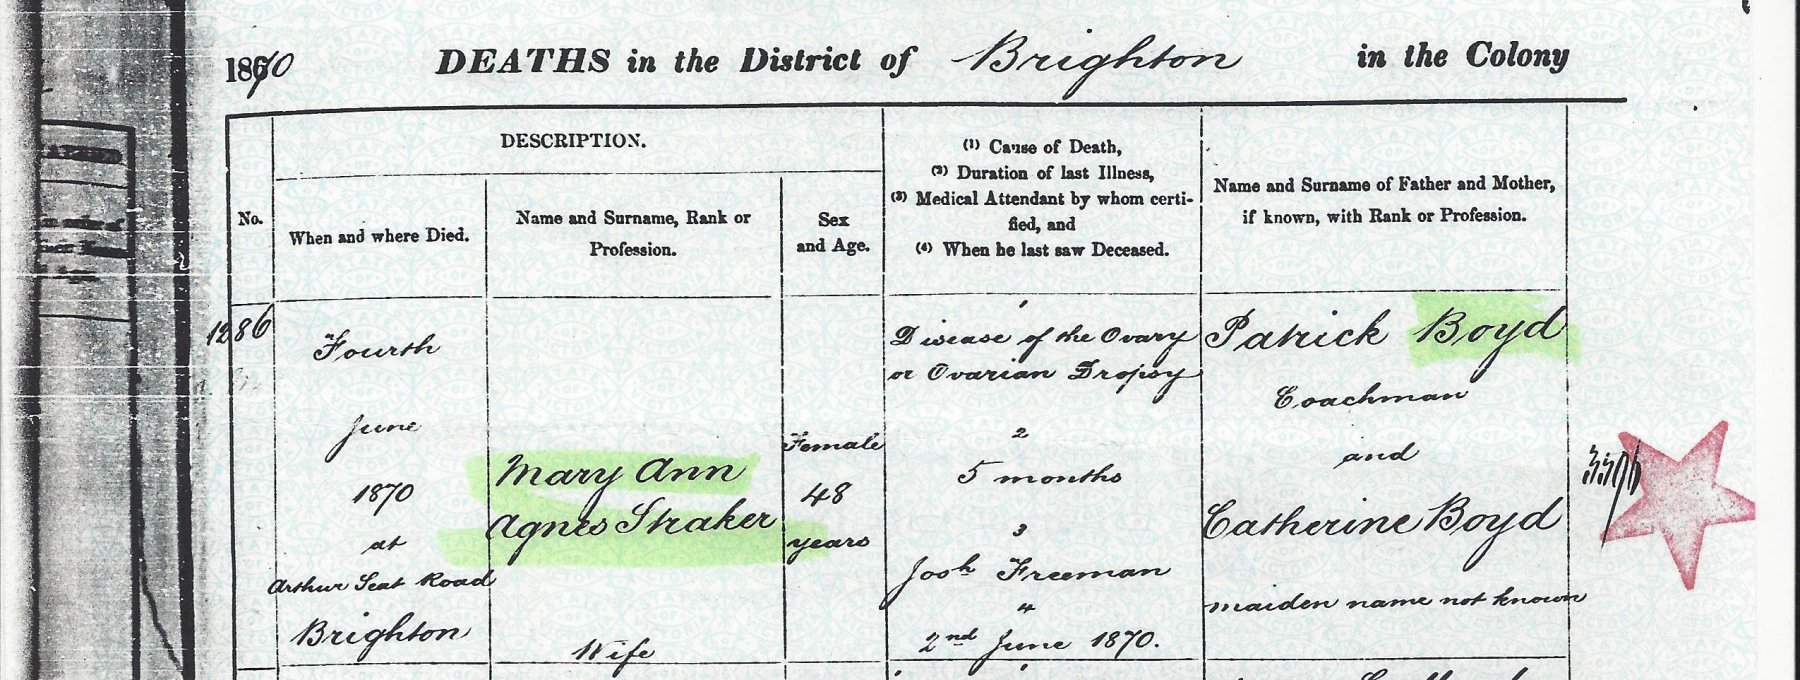 1870 DEATHS in the District of Brighton in the Colony
DESCRIPTION.
No.
When and where Died.
Name and Surname, Rank or
Profession.
Sex
and Age.
(1) Cause of Death,
(2) Duration of last Illness,
(3) Medical Attendant by whom certi-
fied, and
(4) When he last saw Deceased.
Name and Surname of Father and Mother,
if known, with Rank or Profession.
1286
Fourth
June
1870
at
Arthur Seat Road
Brighton
Mary Ann
Agnes Straker
Wife
Female
48
years
1
Disease of the Ovary
or Ovarian Dropsy
2
5 months
3
Josh Freeman
4
2nd June 1870.
Patrick Boyd
Coachman
and
Catherine Boyd
maiden name not known